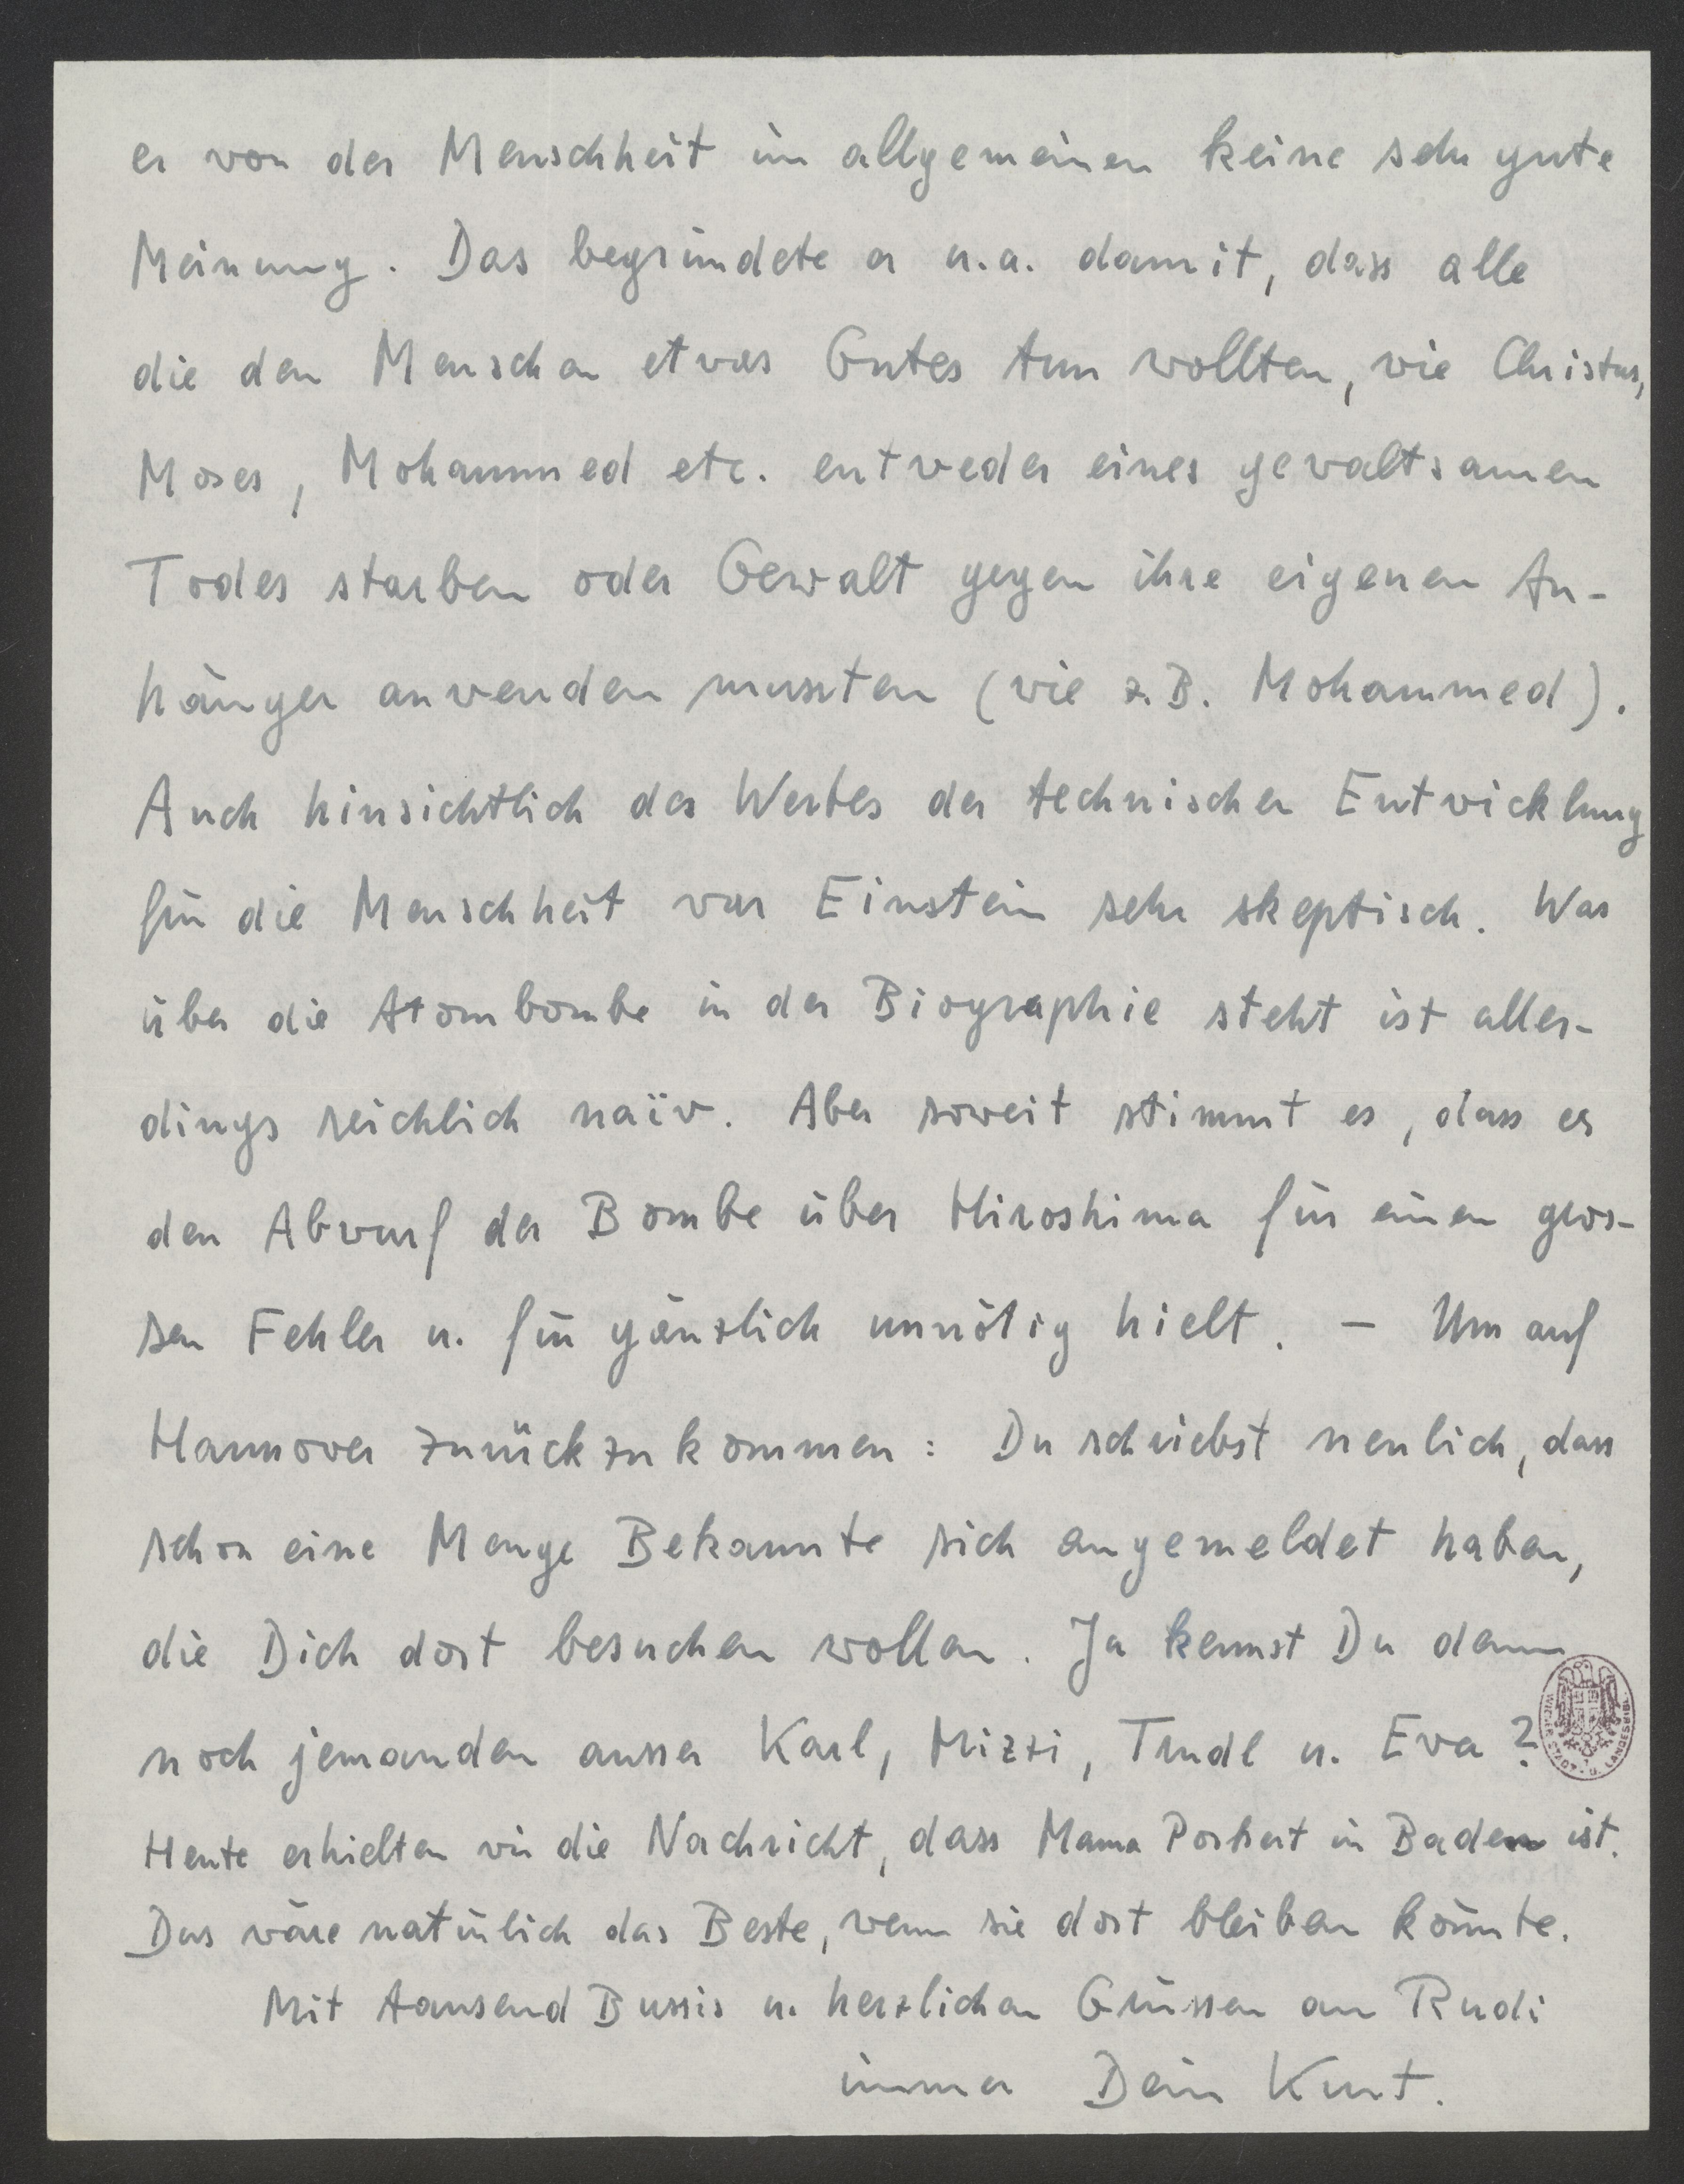 er von der Menschheit im allgemeinen keine sehr gute
Meinung. Das begründete er u.a. damit, dass alle
die den Menschen etwas Gutes tun wollten, wie Christus,
Moses, Mohammed etc. entweder eines gewaltsamen
Todes starben oder Gewalt gegen ihre eigenen An-
hänger anwenden mussten (wie z.B. Mohammed).
Auch hinsichtlich des Wertes der technischen Entwicklung
für die Menschheit war Einstein sehr skeptisch. Was
über die Atombombe in der Biographie steht ist aller-
dings reichlich naïv. Aber soweit stimmt es, dass er
den Abwurf der Bombe über Hiroshima für einen gros-
sen Fehler u. für gänzlich unnötig hielt. – Um auf
Hannover zurückzukommen: Du schriebst neulich, dass
schon eine Menge Bekannte sich angemeldet haben,
die Dich dort besuchen wollen. Ja kennst Du denn
noch jemanden ausser Karl, Mizzi, Trudl u. Eva?
Heute erhielten wir die Nachricht, dass Mama Porkert in Baden ist.
Das wäre natürlich das Beste, wenn sie dort bleiben könnte.
Mit tausend Bussis u. herzlichen Grüssen an Rudi
immer Dein Kurt.
WIENER STADT- U. LANDESBIBL.